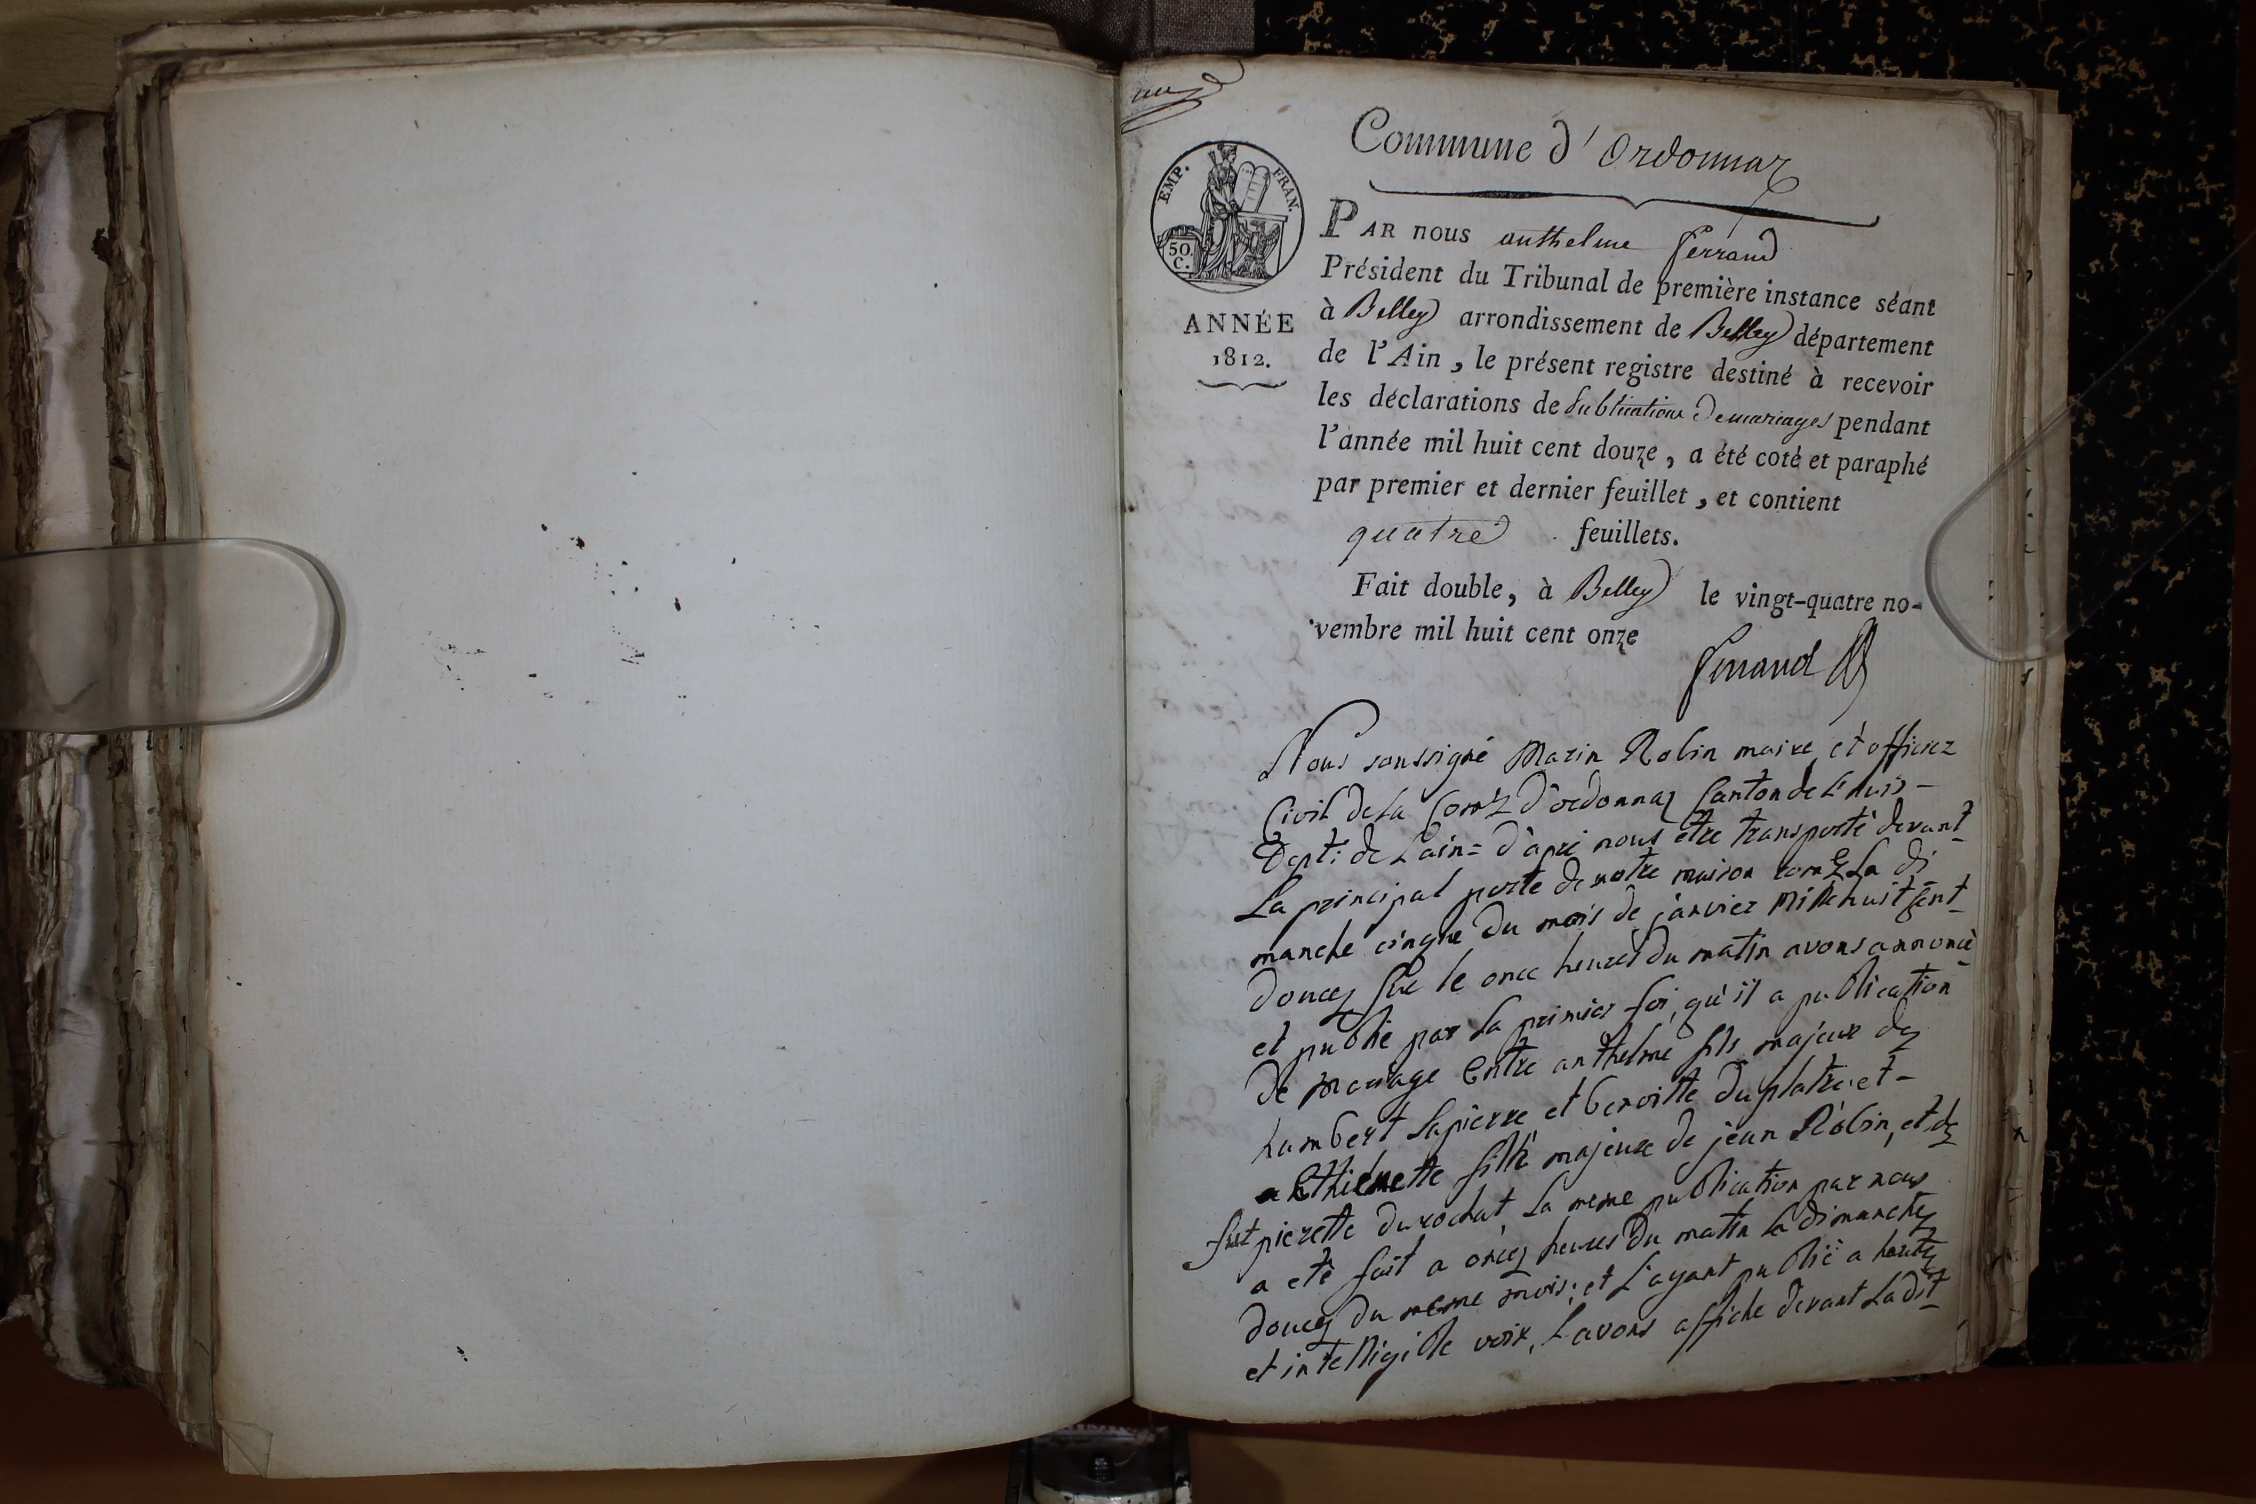 Commune d'Ordonnaz
EMP. FRAN.
50
C.
ANNÉE
1812.
PAR nous anthelme ferrand
Président du Tribunal de première instance séant
à Belley arrondissement de Belley département
de l'Ain, le présent registre destiné à recevoir
les déclarations de publications de mariages pendant
l'année mil huit cent douze, a été coté et paraphé
par premier et dernier feuillet, et contient
quatre feuillets.
Fait double, à Belley le vingt-quatre no-
vembre mil huit cent onze
ferrand
Nous soussigné Marin Robin maire et officiez
Civil de la d'ordonnaz Canton de L'huis -
Dept: de Lain = d'apré nous être transporté devant
La principal porte de notre maison La di
manche cinque du mois de janvier Mille huit Cent
doucez sur le once heures du matin avons annoncé
et publié par la premier foi, qu'il a publication
de Mariage Entre anthelme fils majeur dez
humbert Lapierre et benoitte Duplatre et -
a Ethiennette fille majeure de jean Robin, et dez
fut pierette durochat, La meme publication par nous
a eté fait a oncez heures Du matin La dimanchez
doucez du meme mois; et L'ayant publié a hautez
et intelligible voix, Lavons affiche devant Ladit